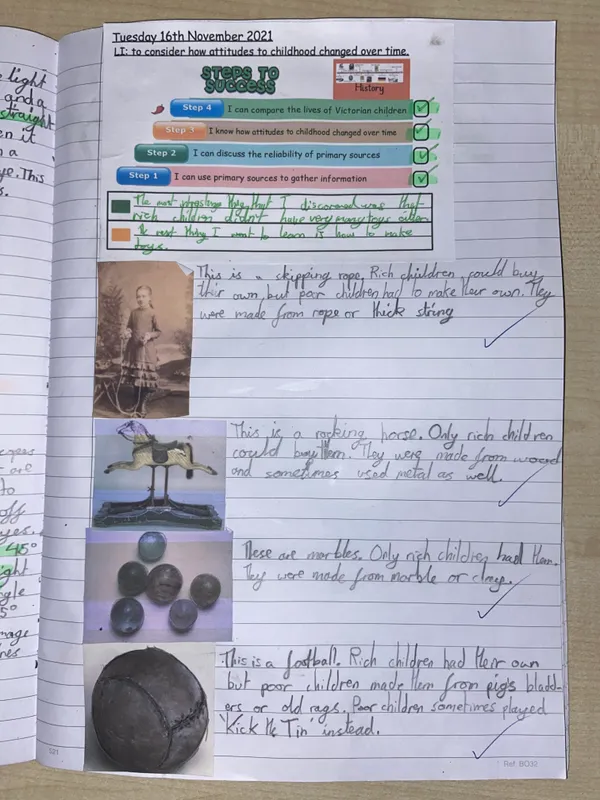 Tuesday 16th November 2021
LI: to consider how attitudes to childhood changed over time.
STEPS TO
SUCCESS
History
Step 4 I can compare the lives of Victorian children
Step 3 I know how attitudes to childhood changed over time
Step 2 I can discuss the reliability of primary sources
Step 1 I can use primary sources to gather information
The most intresting thing that I discovered was that
rich children didn't have very many toys
The next thing I want to learn is how to make
toys.
This is a skipping rope. Rich children could buy
their own but poor children had to make their own. They
were made from rope or thick string
This is a rocking horse. Only rich children
could buy them. They were made from wood
and sometimes used metal as well.
These are marbles. Only rich children had them.
They were made from marble or clay.
This is a football. Rich children had their own
but poor children made them from pig's bladd-
ers or old rags. Poor children sometimes played
'Kick the Tin' instead.
light
and a
straight
en it
n a
ye. This
s.
are
to
off
yes.
45°
ight
ngle
5°
521
Ref: BO32